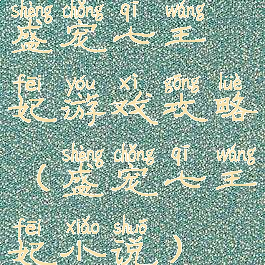 shèng chǒng qī wáng
盛宠七王
fēi yóu xì gōng lüè
妃游戏攻略
shèng chǒng qī wáng
（盛宠七王
fēi xiǎo shuō
妃小说）